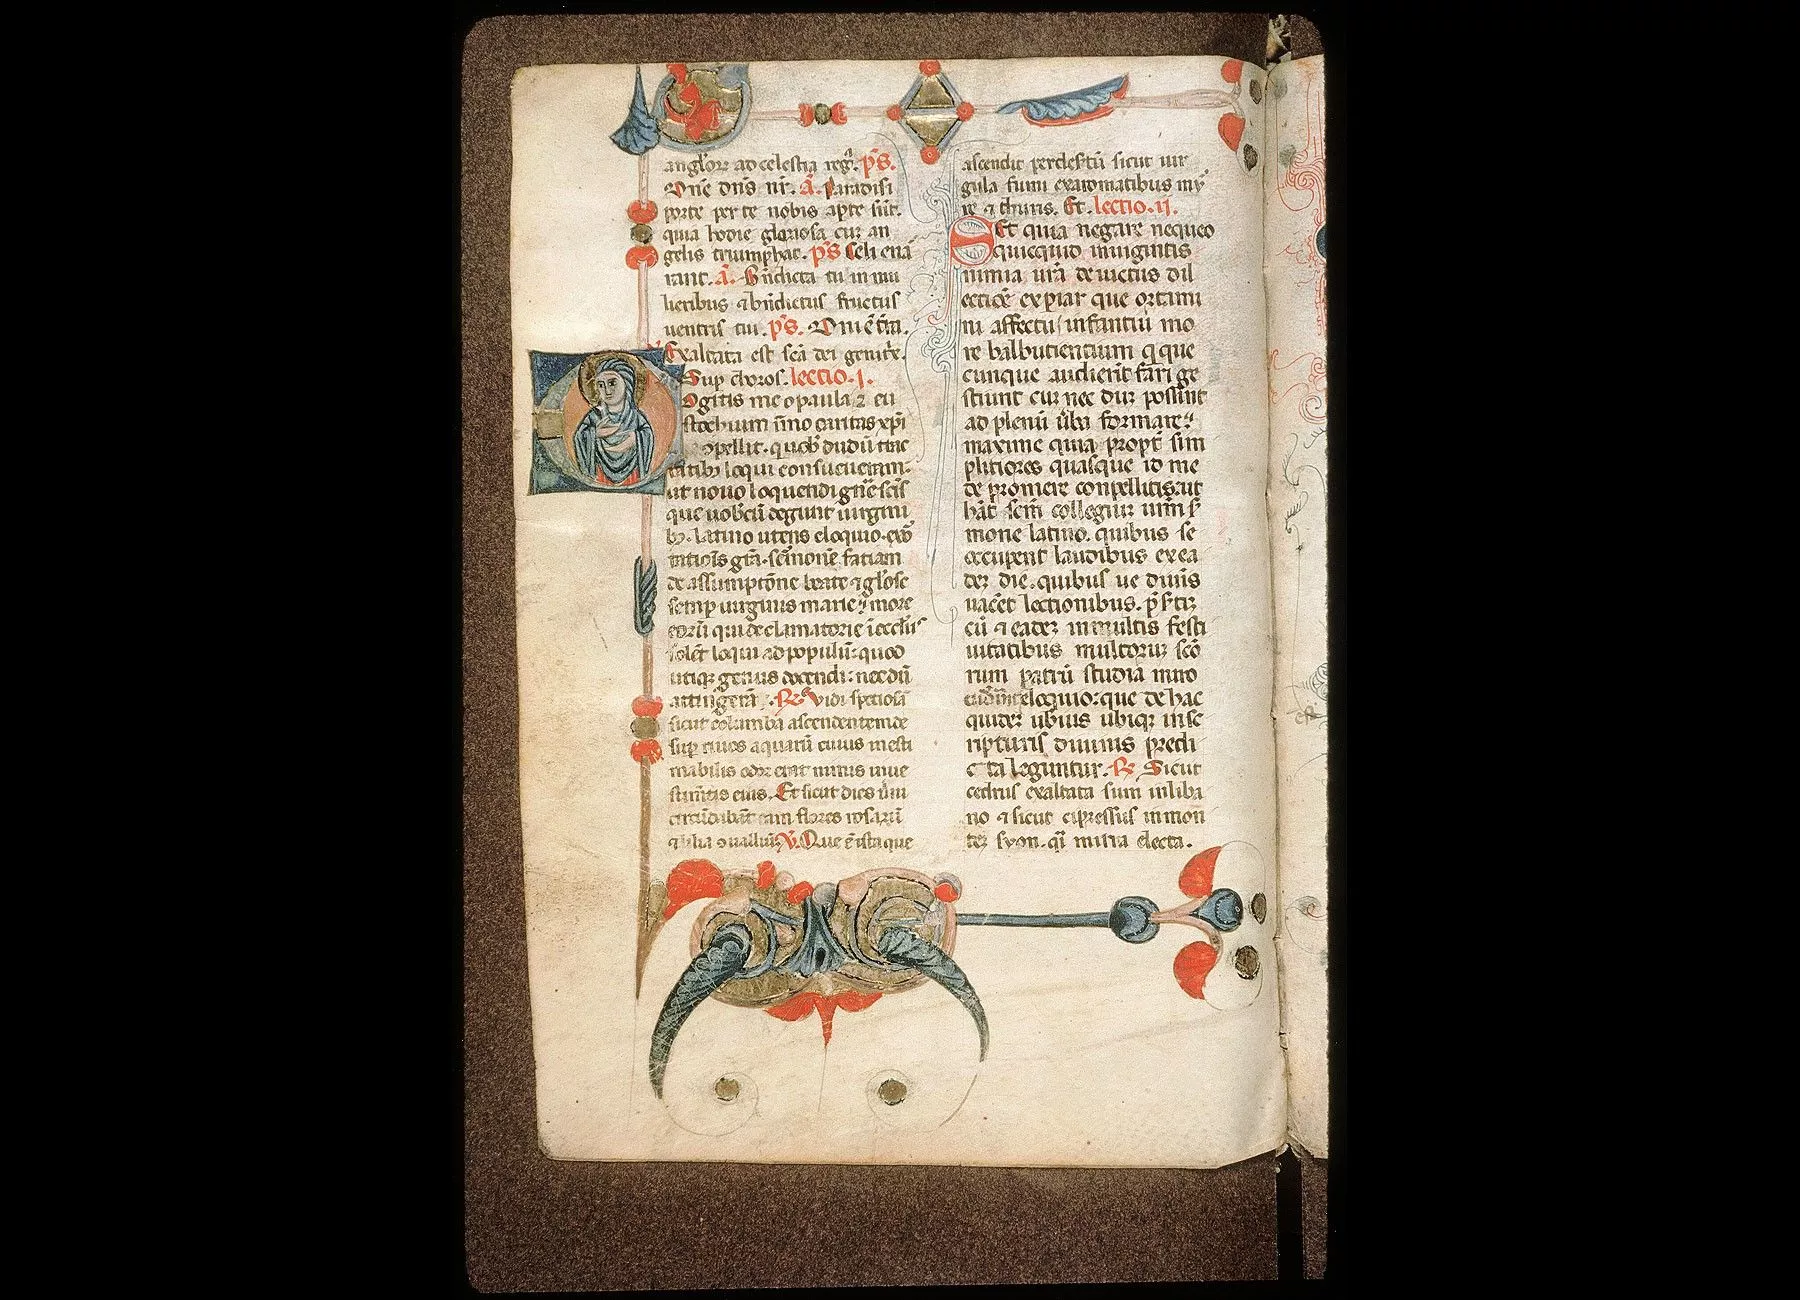 angelorum ad celestia regna. ps.
Dñe dñs nr. A. Paradisi
porte per te nobis apte sūt.
quia hodie gloriosa cuz an
gelis triumphat. ps Celi enā
rant. A. Bñdicta tu in mu
lieribus ⁊ bñdictus fructus
uentris tui. ps. Dñi ē tr̄a.
Exaltata est scā dei genitx̄.
Sup choros. lectio. i.
Cogitis me o paula ⁊ eu
stochium ūmo caritas xp̄i
ɔpellit. dudū trac
tatibȝ loqui consueueram.
ut nouo loquendi gñe scīs
que uobcū degunt uirgini
bȝ. latino utens eloquio. exor
tationis grā. sermonē faciam
de assumptōne beate ⁊ gl̄ose
semp uirginis marie. more
eorū qui declamatorie ī ecclīis
solēt loqui ad populū: quod
utiqȝ genus docendi: necdū
attingerā. R̄ Vidi speciosā
sicut columbā ascendentem de
sup riuos aquarū cuius inesti
mabilis odor erat nimis in ue
stimētis eius. Et sicut dies ūni
circūdabāt eam flores rosarū
⁊ lilia ɔuallium. V. Que ē ista que
ascendit per desertū sicut uir
gula fumi ex aromatibus mir
re ⁊ thuris. Et. lectio. ij.
Set quia negare nequeo
quicquid iniungitis
nimia ura deuictus dil
ectiōe expiar que oztimi
ni affectu infantiū mo
re balbutientium q̄ que
cunque audierīt fari ge
stiunt cuz nec duz possint
ad plenū ūba formare.
maxime quia propt̄ sim
plitiores quasque id me
de promere conpellitis. ut
hāt scm̄ collegiuz urm̄ s̄
mone latino. quibus se
occupent laudibus ex ea
dez die. quibus ue diuīs
uacēt lectionibus. p̄sertiz
cū ⁊ eadez in multis festi
uitatibus multoruz sc̄o
rum patrū studia miro
eloquio: que de hac
quidez ubius ubiqȝ in sc
ripturis diuinis predi
cta leguntur. R̄ Sicut
cedrus exaltata sum in liba
no ⁊ sicut cipressus in mon
tez syon. q̄i mirra electa.